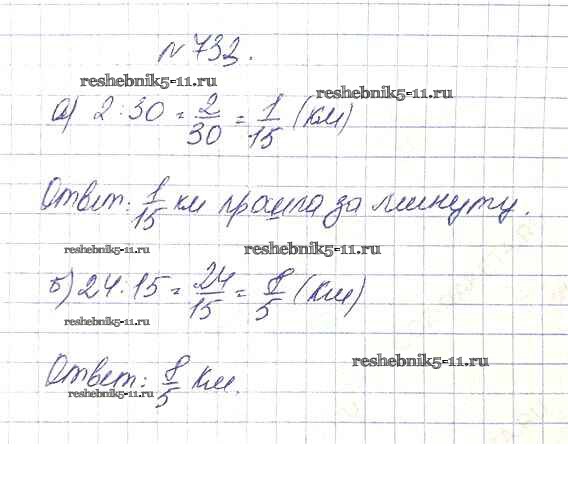 № 733.
reshebnik5-11.ru
reshebnik5-11.ru
а) 2 : 30 = 2/30 = 1/15 (км)
Ответ: 1/15 км прошла за минуту.
reshebnik5-11.ru
reshebnik5-11.ru
б) 24 : 15 = 24/15 = 8/5 (км)
reshebnik5-11.ru
reshebnik5-11.ru
Ответ: 8/5 км.
reshebnik5-11.ru